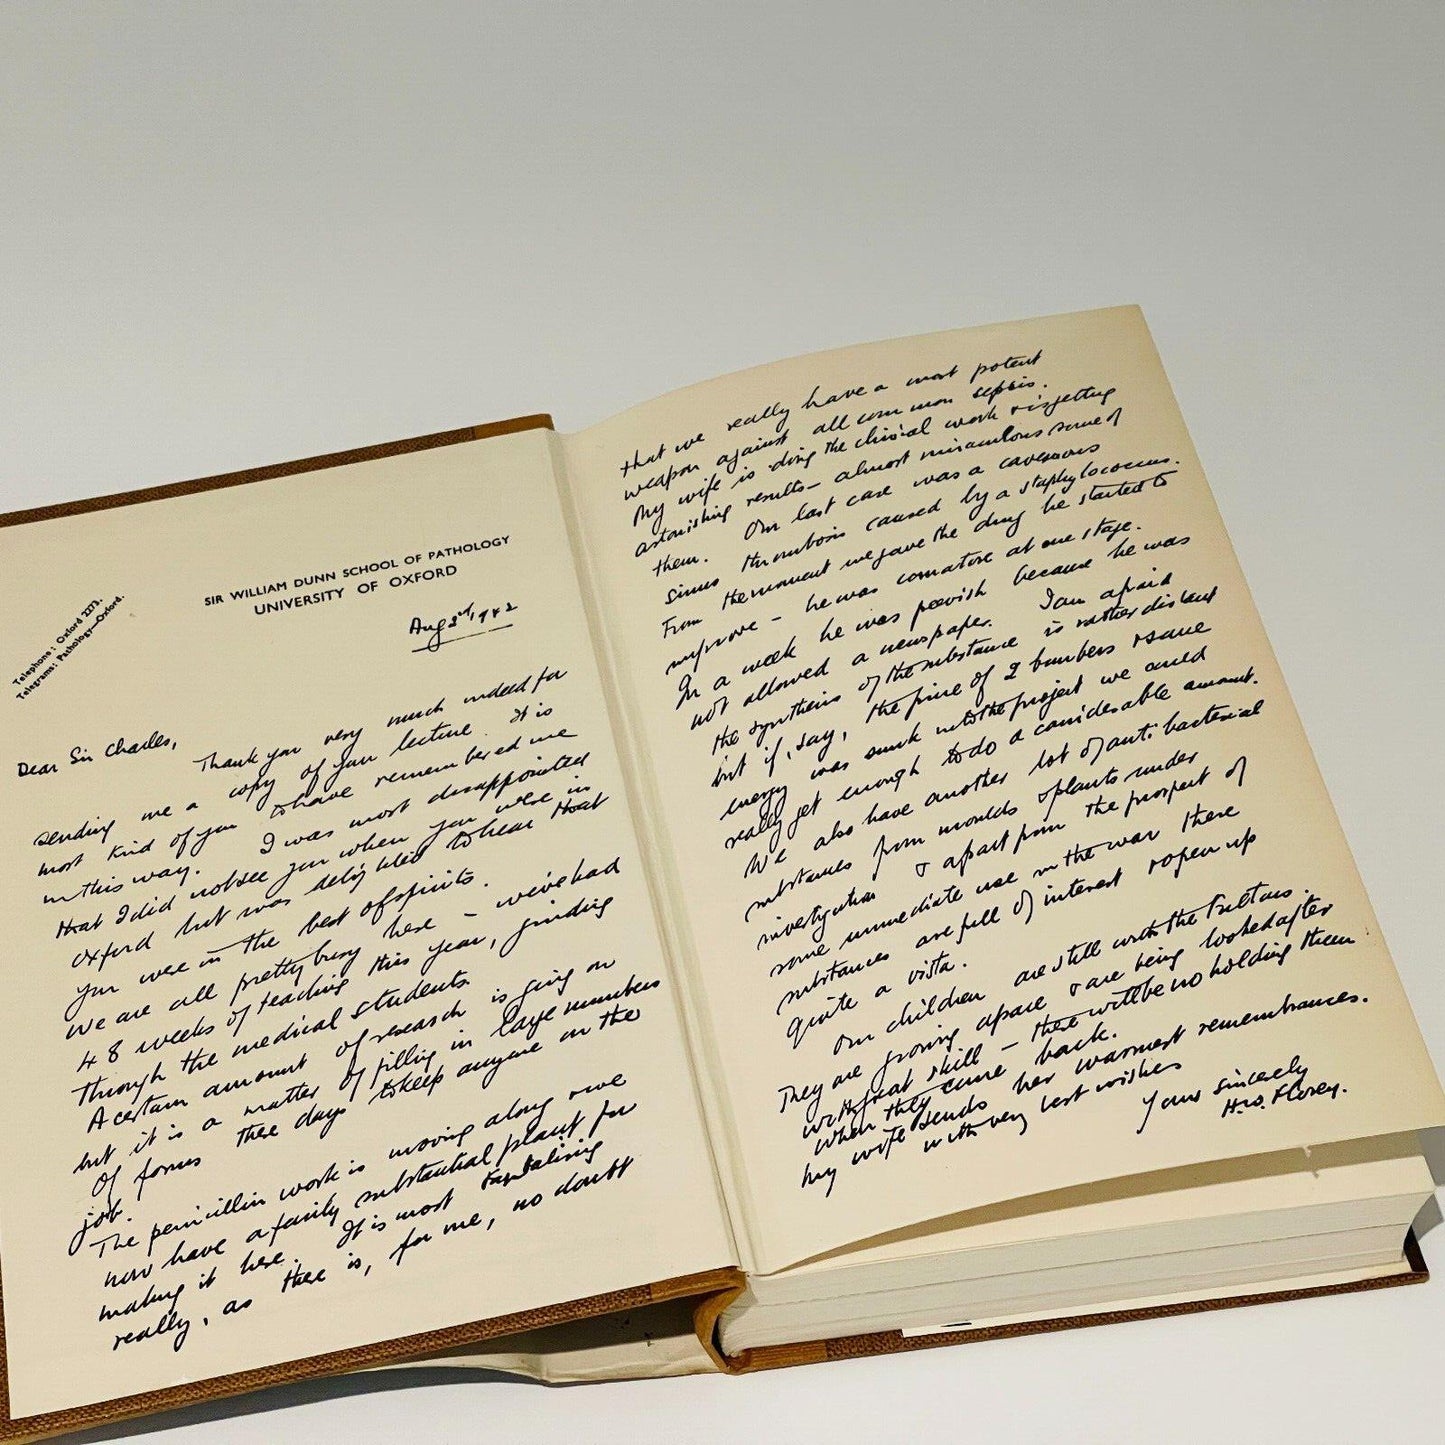 SIR WILLIAM DUNN SCHOOL OF PATHOLOGY
UNIVERSITY OF OXFORD
Telephone: Oxford 2273.
Telegrams: Pathology—Oxford.
Aug 2nd, 1942
Dear Sir Charles,
Thank you very much indeed for
sending me a copy of your lecture. It is
most kind of you to have remembered me
in this way. I was most disappointed
that I did not see you when you were in
Oxford but was delighted to hear that
you were in the best of spirits.
We are all pretty busy here – we've had
48 weeks of teaching this year, grinding
through the medical students.
A certain amount of research is going on
but it is a matter of filling in large numbers
of forms these days to keep anyone on the
job.
The penicillin work is moving along & we
now have a fairly substantial plant for
making it here. It is most tantalising
really, as there is, for me, no doubt
that we really have a most potent
weapon against all common sepsis.
My wife is doing the clinical work & is getting
astonishing results – almost miraculous some of
them. Our last case was a cavernous
sinus thrombosis caused by a staphylococcus.
From the moment we gave the drug he started to
improve – he was comatose at one stage.
In a week he was peevish because he was
not allowed a newspaper. I am afraid
the synthesis of the substance is rather distant
but if, say, the price of 2 bombers & some
energy was sunk into the project we could
really get enough to do a considerable amount.
We also have another lot of anti bacterial
substances from moulds & plants under
investigation & apart from the prospect of
some immediate use in the war these
substances are full of interest & open up
quite a vista.
Our children are still with the Fultons.
They are growing apace & are being looked after
with great skill – there will be no holding them
when they come back.
My wife sends her warmest remembrances.
with very best wishes
Yours sincerely
H.W. Florey.